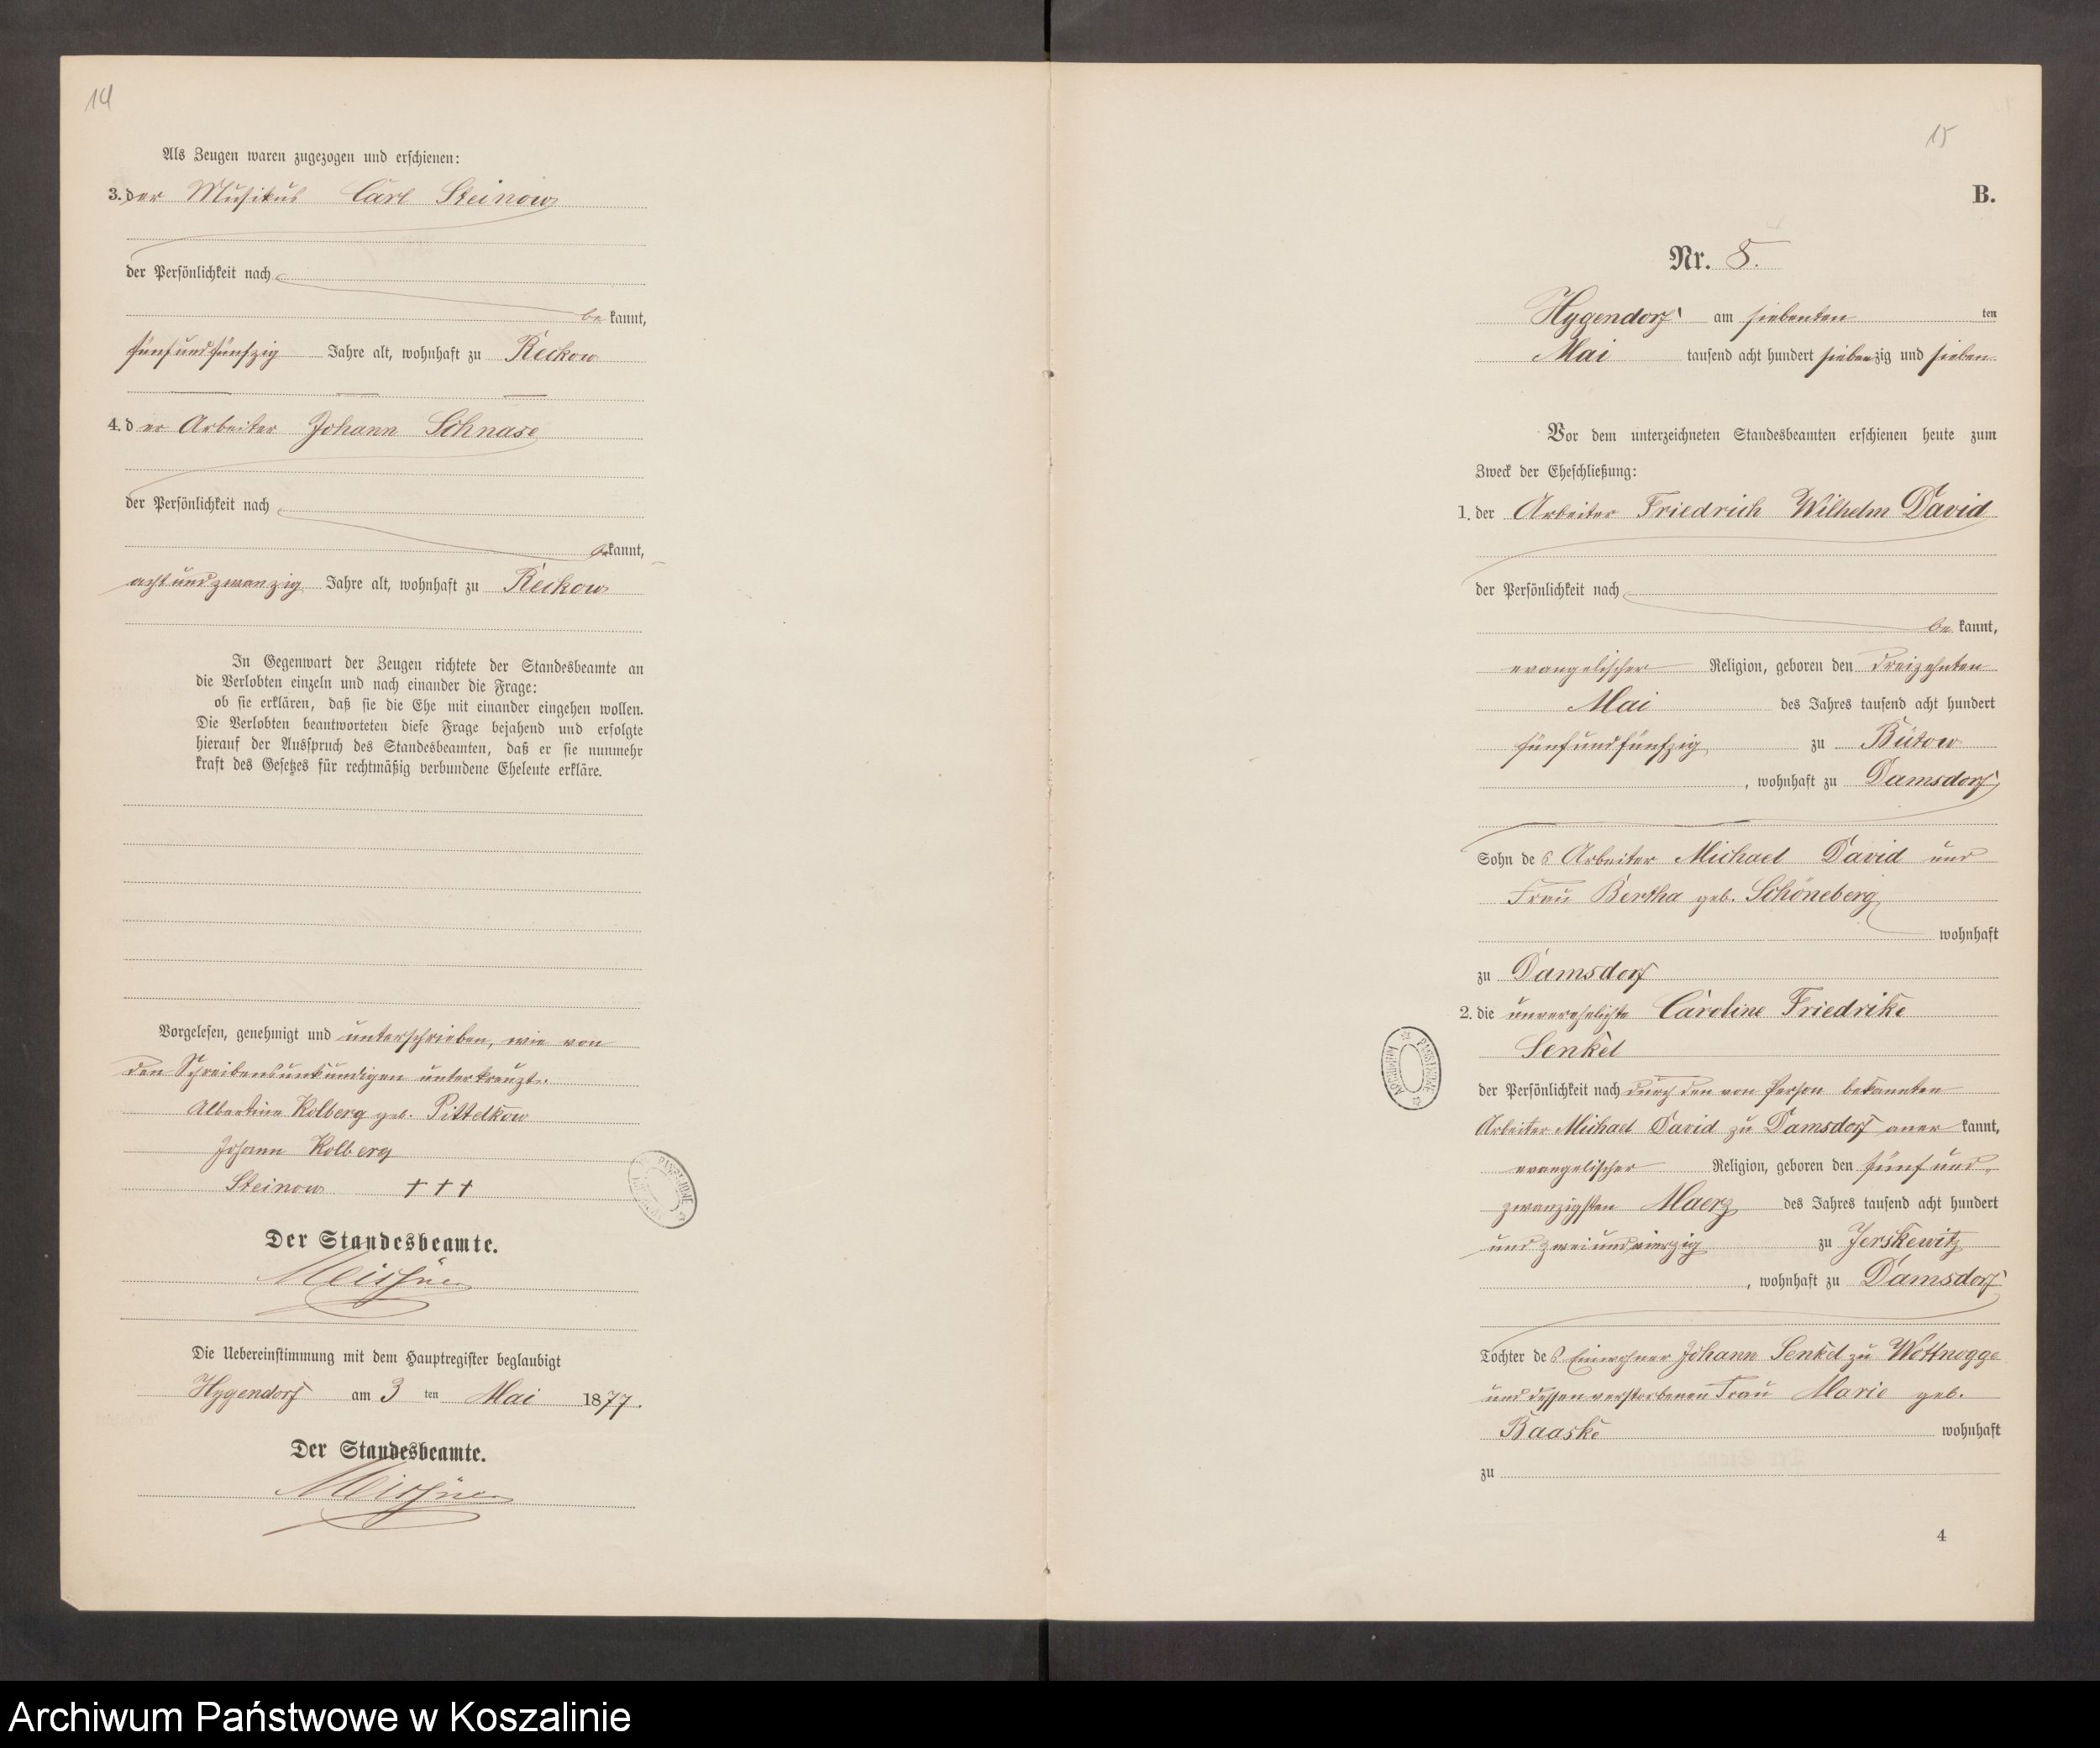 14
Als Zeugen waren zugezogen und erschienen:
3. der Musikus Carl Steinow
der Persönlichkeit nach
be kannt,
fünfundfünfzig Jahre alt, wohnhaft zu Reckow
4. der Arbeiter Johann Schnase
der Persönlichkeit nach
kannt,
achtundzwanzig Jahre alt, wohnhaft zu Reckow
In Gegenwart der Zeugen richtete der Standesbeamte an
die Verlobten einzeln und nach einander die Frage:
ob sie erklären, daß sie die Ehe mit einander eingehen wollen.
Die Verlobten beantworteten diese Frage bejahend und erfolgte
hierauf der Ausspruch des Standesbeamten, daß er sie nunmehr
kraft des Gesetzes für rechtmäßig verbundene Eheleute erkläre.
Vorgelesen, genehmigt und unterschrieben, wie von
den Schreibensunkundigen unterkreuzt.
Albertine Kolberg geb. Pittelkow
Johann Kolberg
Steinow +++
Der Standesbeamte.
Die Uebereinstimmung mit dem Hauptregister beglaubigt
Hygendorf am 3 ten Mai 1877.
Der Standesbeamte.
15
B.
Nr. 8.
Hygendorf am siebenten ten
Mai tausend acht hundert siebenzig und sieben
Vor dem unterzeichneten Standesbeamten erschienen heute zum
Zweck der Eheschließung:
1. der Arbeiter Friedrich Wilhelm David
der Persönlichkeit nach
be kannt,
evangelischer Religion, geboren den dreizehnten
Mai des Jahres tausend acht hundert
fünfundfünfzig zu Bütow
, wohnhaft zu Damsdorf
Sohn des Arbeiter Michael David und
Frau Bertha geb. Schöneberg
wohnhaft
zu Damsdorf
2. die unverehelichte Caroline Friedrike
Senkel
der Persönlichkeit nach durch den von Person bekannten
Arbeiter Michael David zu Damsdorf aner kannt,
evangelischer Religion, geboren den fünf und
zwanzigsten Maerz des Jahres tausend acht hundert
und zweiundvierzig zu Jerskewitz
, wohnhaft zu Damsdorf
Tochter des Einwohner Johann Senkel zu Wottnogge
und dessen verstorbenen Frau Marie geb.
Baaske wohnhaft
zu
4
ARCHIWUM PAŃSTWOWE
Archiwum Państwowe w Koszalinie